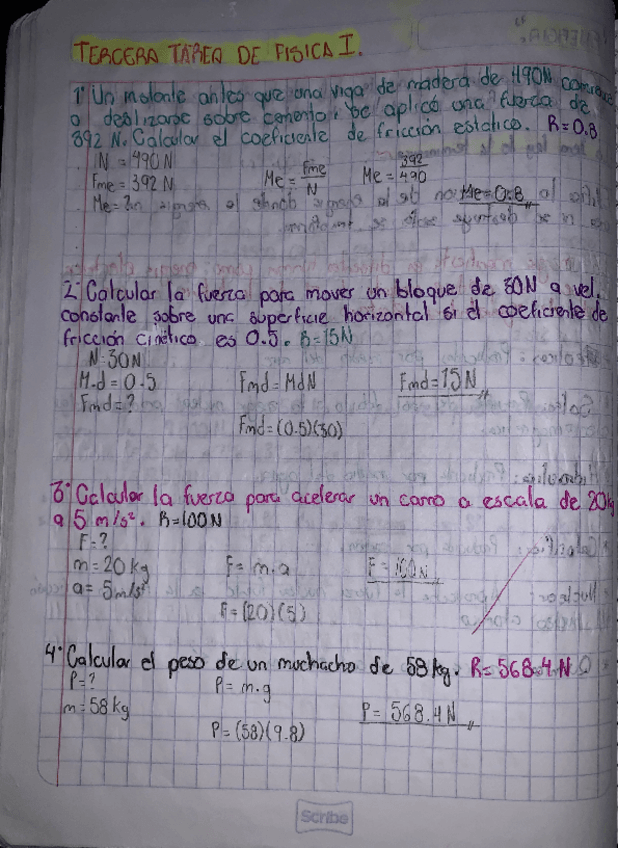 TERCERA TAREA DE FISICA I.
1° Un instante antes que una viga de madera de 490N comience
a deslizarse sobre cemento, se aplicó una fuerza de
392 N. Calcular el coeficiente de fricción estático. R=0.8
N = 490N
Fme = 392 N
Me =
Me = Fme/N
Me = 392/490
Me = 0.8
2° Calcular la fuerza para mover un bloque de 30N a vel.
constante sobre una superficie horizontal si el coeficiente de
fricción cinético es 0.5. R=15N
N=30N
M.d = 0.5
Fmd = ?
Fmd = MdN
Fmd = (0.5)(30)
Fmd = 15N
3° Calcular la fuerza para acelerar un carro a escala de 20kg
a 5 m/s². R=100N
F = ?
m = 20 kg
a = 5m/s²
F = m.a
F = (20)(5)
F = 100N
4° Calcular el peso de un muchacho de 58 kg. R=568.4 N
P = ?
m = 58 kg
P = m.g
P = (58)(9.8)
P = 568.4 N
Scribe